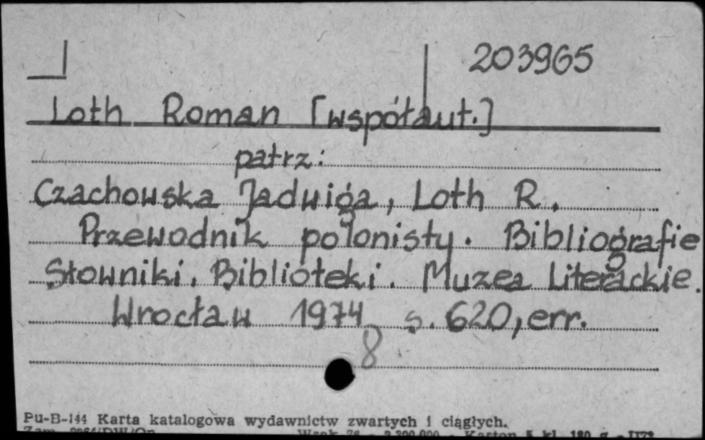 203965
Loth Roman [współaut.]
patrz:
Czachowska Jadwiga, Loth R.
Przewodnik polonisty. Bibliografie
Słowniki. Biblioteki. Muzea Literackie.
Wrocław 1974 s. 620, err.
8
Pu-B-144 Karta katalogowa wydawnictw zwartych i ciągłych.